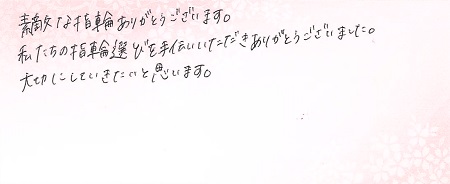 素敵な指輪ありがとうございます。
私たちの指輪選びを手伝いいただきありがとうございました。
大切にしていきたいと思います。